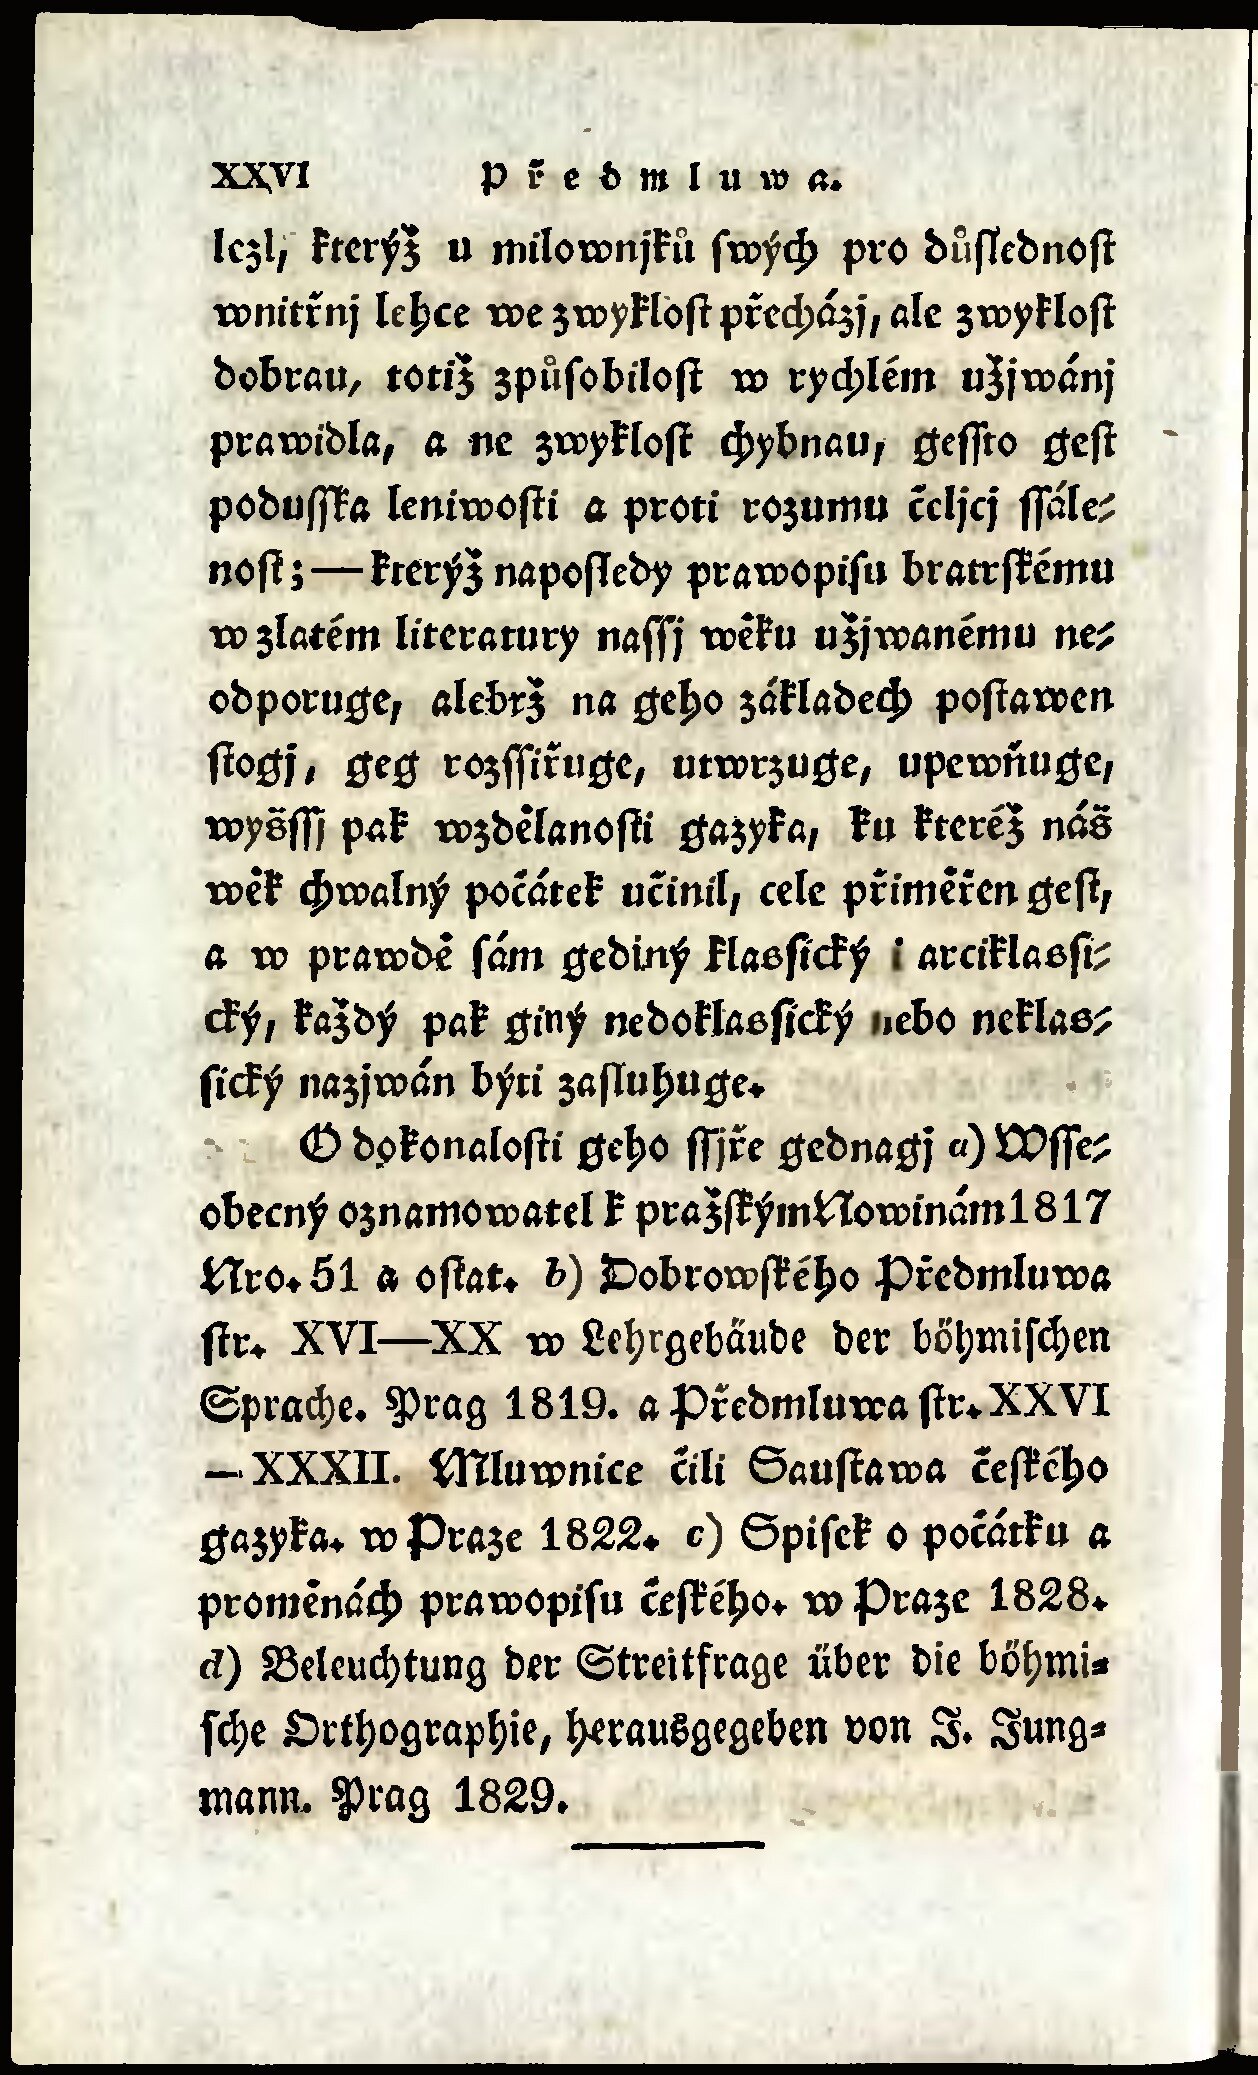 XXVI Předmluwa.
lezl, kterýž u milownjků swých pro důslednost
wnitřnj lehce we zwyklost přecházj, ale zwyklost
dobrau, totiž způsobilost w rychlém užjwánj
prawidla, a ne zwyklost chybnau, gessto gest
podusska leniwosti a proti rozumu čeljcj ssále-
nost; — kterýž naposledy prawopisu bratrskému
w zlatém literatury nassj wěku užjwanému ne-
odporuge, alebrž na geho základech postawen
stogj, geg rozssiřuge, utwrzuge, upewňuge,
wyšssj pak wzdělanosti gazyka, ku kteréž náš
wěk chwalný počátek učinil, cele přiměřen gest,
a w prawdě sám gediný klassický i arciklassi-
cký, každý pak giný nedoklassický nebo neklas-
sický nazjwán býti zasluhuge.
O dokonalosti geho ssjře gednagj a) Wsse-
obecný oznamowatel k pražským Nowinám 1817
Nro. 51 a ostat. b) Dobrowského Předmluwa
str. XVI—XX w Lehrgebäude der böhmischen
Sprache. Prag 1819. a Předmluwa str. XXVI
—XXXII. Mluwnice čili Saustawa českého
gazyka. w Praze 1822. c) Spisek o počátku a
proměnách prawopisu českého. w Praze 1828.
d) Beleuchtung der Streitfrage über die böhmi-
sche Orthographie, herausgegeben von J. Jung-
mann. Prag 1829.